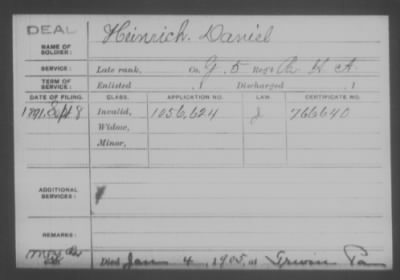 DEAL
Heinrich. Daniel
NAME OF SOLDIER:
SERVICE: Late rank, Co. G. 5 Reg't Pa. H. A.
TERM OF SERVICE: Enlisted , 1 Discharged , 1
DATE OF FILING. CLASS. APPLICATION NO. LAW. CERTIFICATE NO.
1891, Sept 8 Invalid, 1056,624 J 766640
Widow,
Minor,
ADDITIONAL SERVICES:
REMARKS:
Died Jan 4, 1905, at Irwin Pa